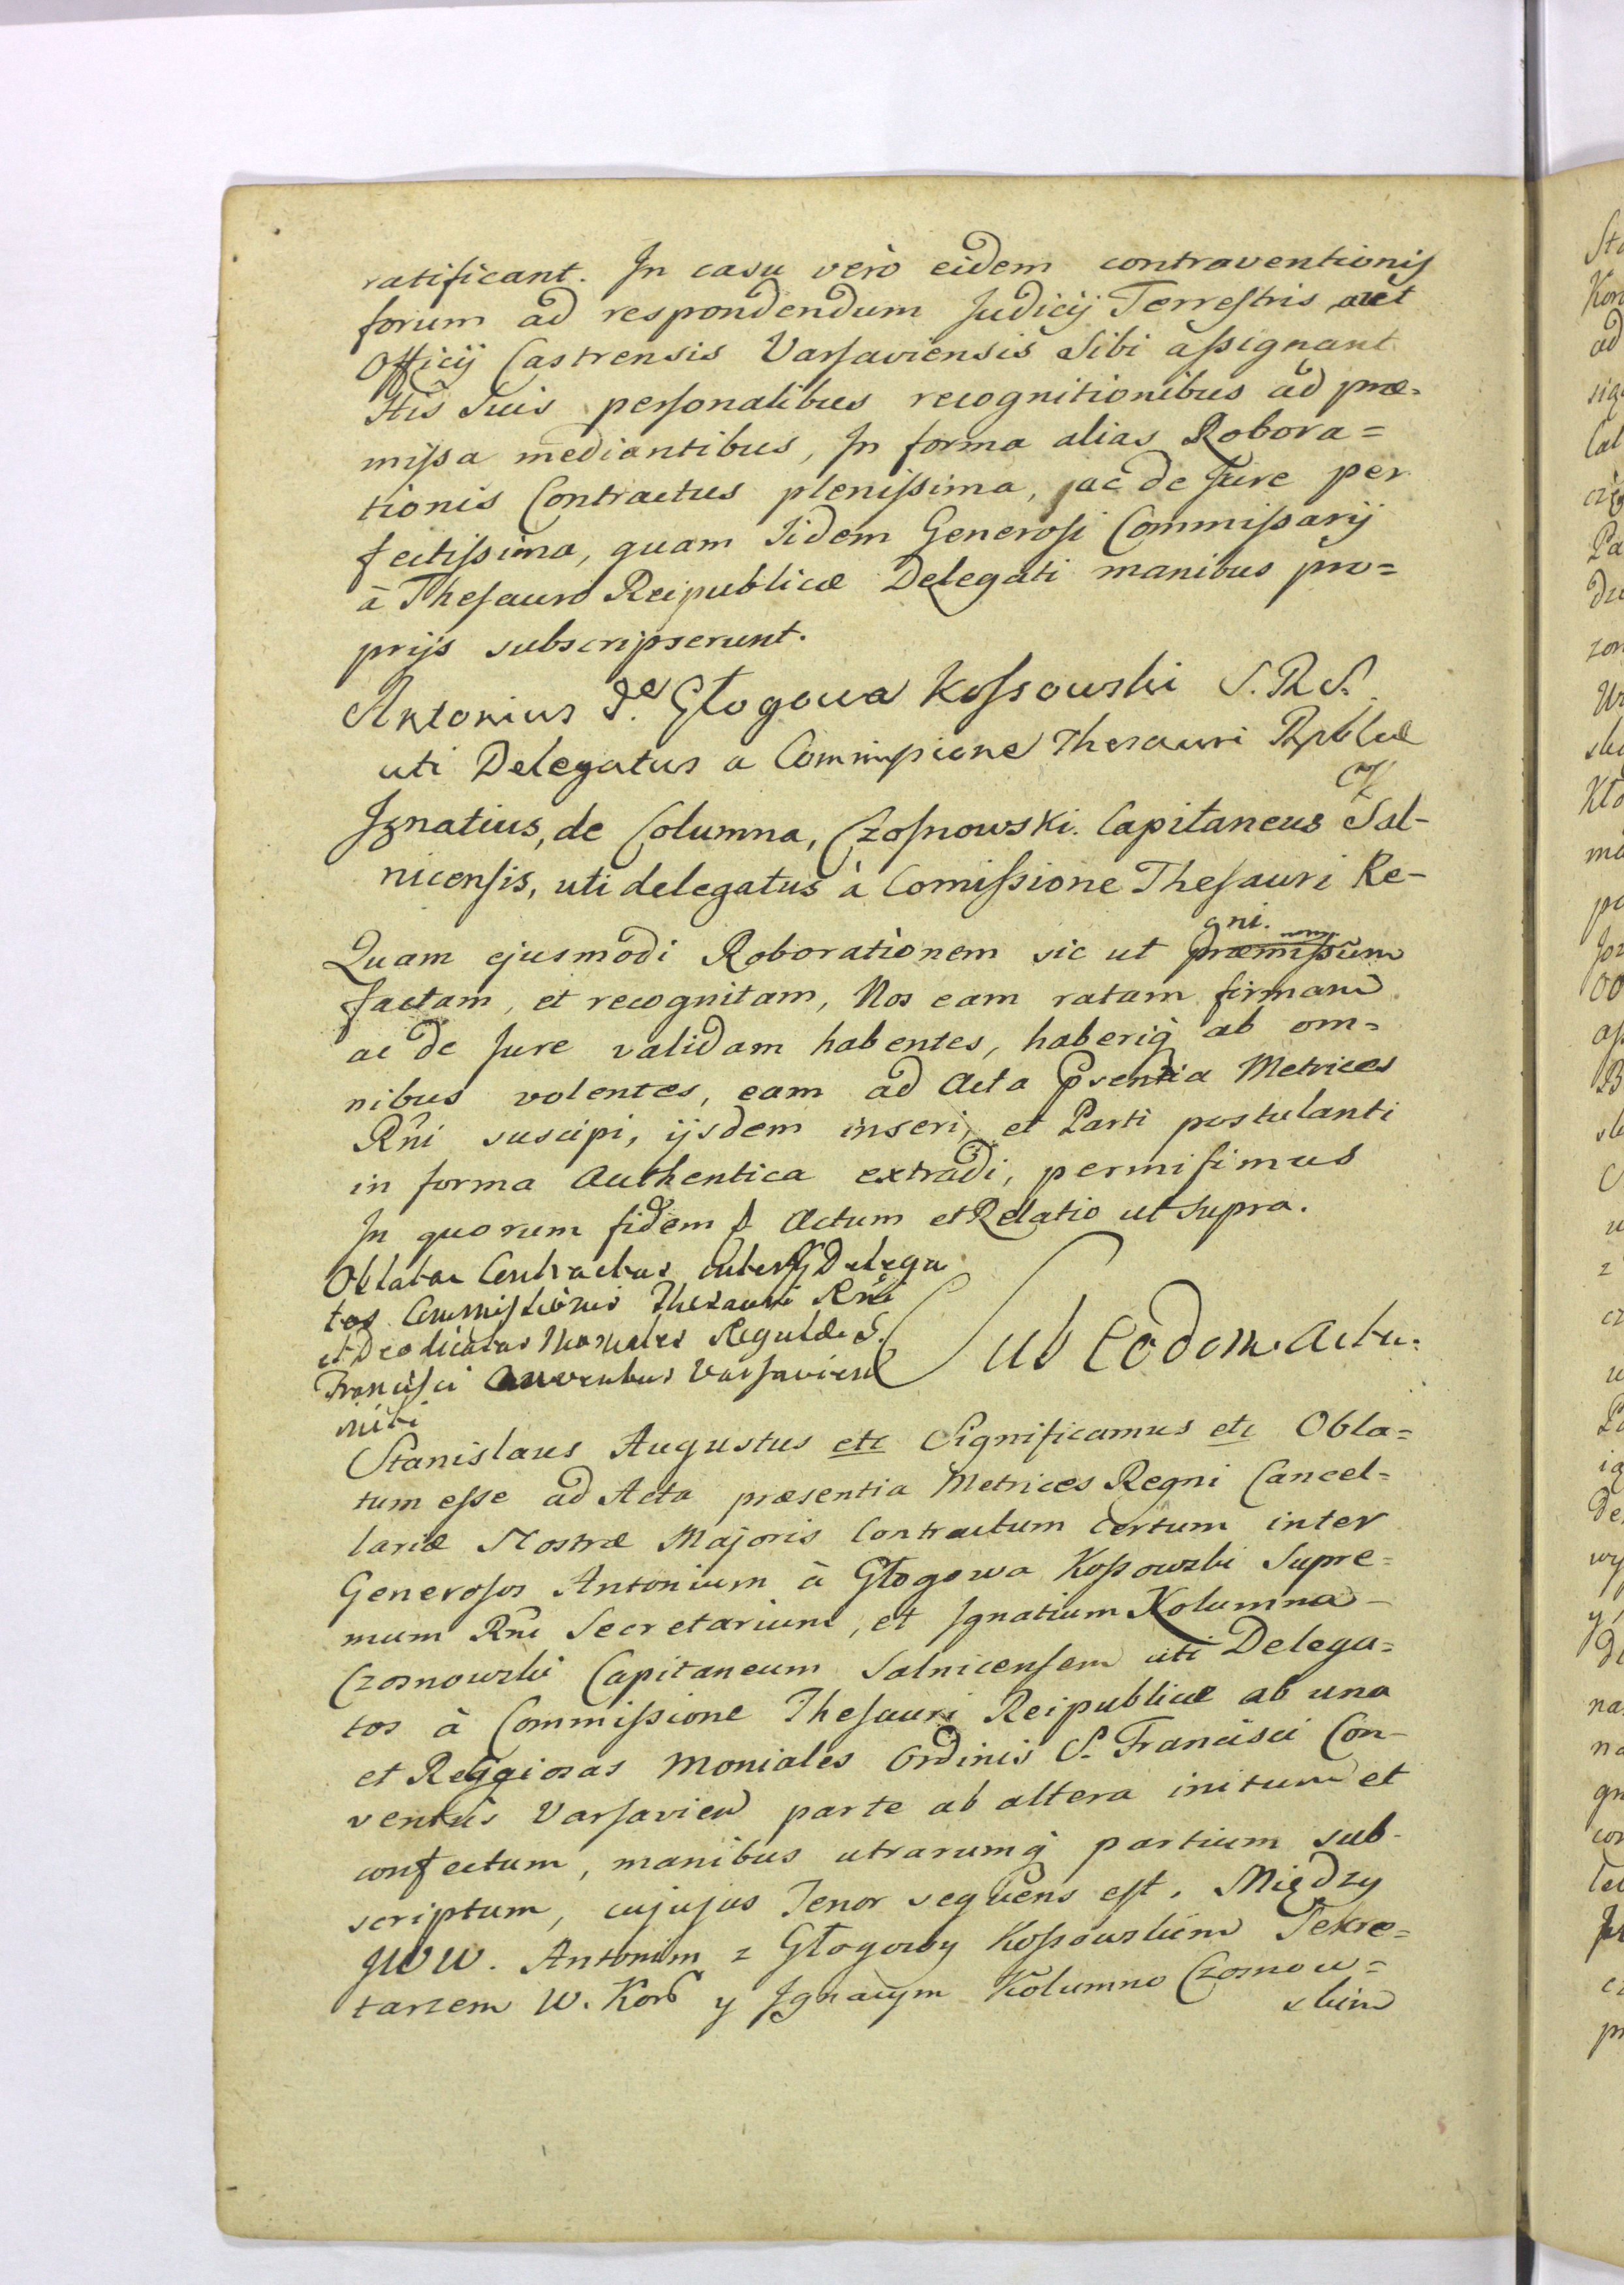 ratificant. In casu verò eidem contraventionis
forum ad respondendum Judicij Terrestris aut
Officij Castrensis Varsaviensis Sibi assignant
His Suis personalibus recognitionibus ad præ-
missa mediantibus, In forma alias Robora=
tionis Contractus plenissima, ac de Jure per
fectissima, quam Iidem Generosi Commissarij
à Thesauro Reipublicæ Delegati manibus pro=
prijs subscripserunt.
Antonius de Głogowa Kossowski S. R. S.
uti Delegatus a Commissione Thesauri Rpblcæ
Ignatius, de Columna, Czosnowski. Capitaneus Sal-
nicensis, uti delegatus à Comissione Thesauri Re-
gni.
Quam ejusmodi Roborationem sic ut præmissum
factam, et recognitam, Nos eam ratam firmam
ac de Jure validam habentes, haberiq ab om=
nibus volentes, eam ad Acta prentia Metrices
Rñi suscipi, ijsdem inseri, et Parti postulanti
in forma Authentica extradi, permisimus
In quorum fidem Actum et Relatio ut supra.
Oblatae Contractus inter GG Delega
tos Commissionis Thesauri Rñi
et Deo dicatas Moniales Regulæ S.
Francisci Conventus Varsavien
Sub Eodem Actu.
Stanislaus Augustus etc Significamus etc Obla=
tum esse ad Acta præsentia Metrices Regni Cancel=
lariæ Nostræ Majoris Contractum certum inter
Generosos Antonium à Głogowa Kossowski Supre=
mum Rñi Secretarium, et Ignatium Kolumna
Czosnowski Capitaneum Salnicensem uti Delega=
tos à Commissione Thesauri Reipublicæ ab una
et Religiosas Moniales Ordinis S. Francisci Con-
ventûs Varsavien parte ab altera initum et
confectum, manibus utrarumq partium sub-
scriptum, cujusus Tenor sequens est. Między
JWW. Antonim z Głogowy Kossowskim Sekre=
tarzem W. Kor y Ignacym Kolumno Czosnow=
skim